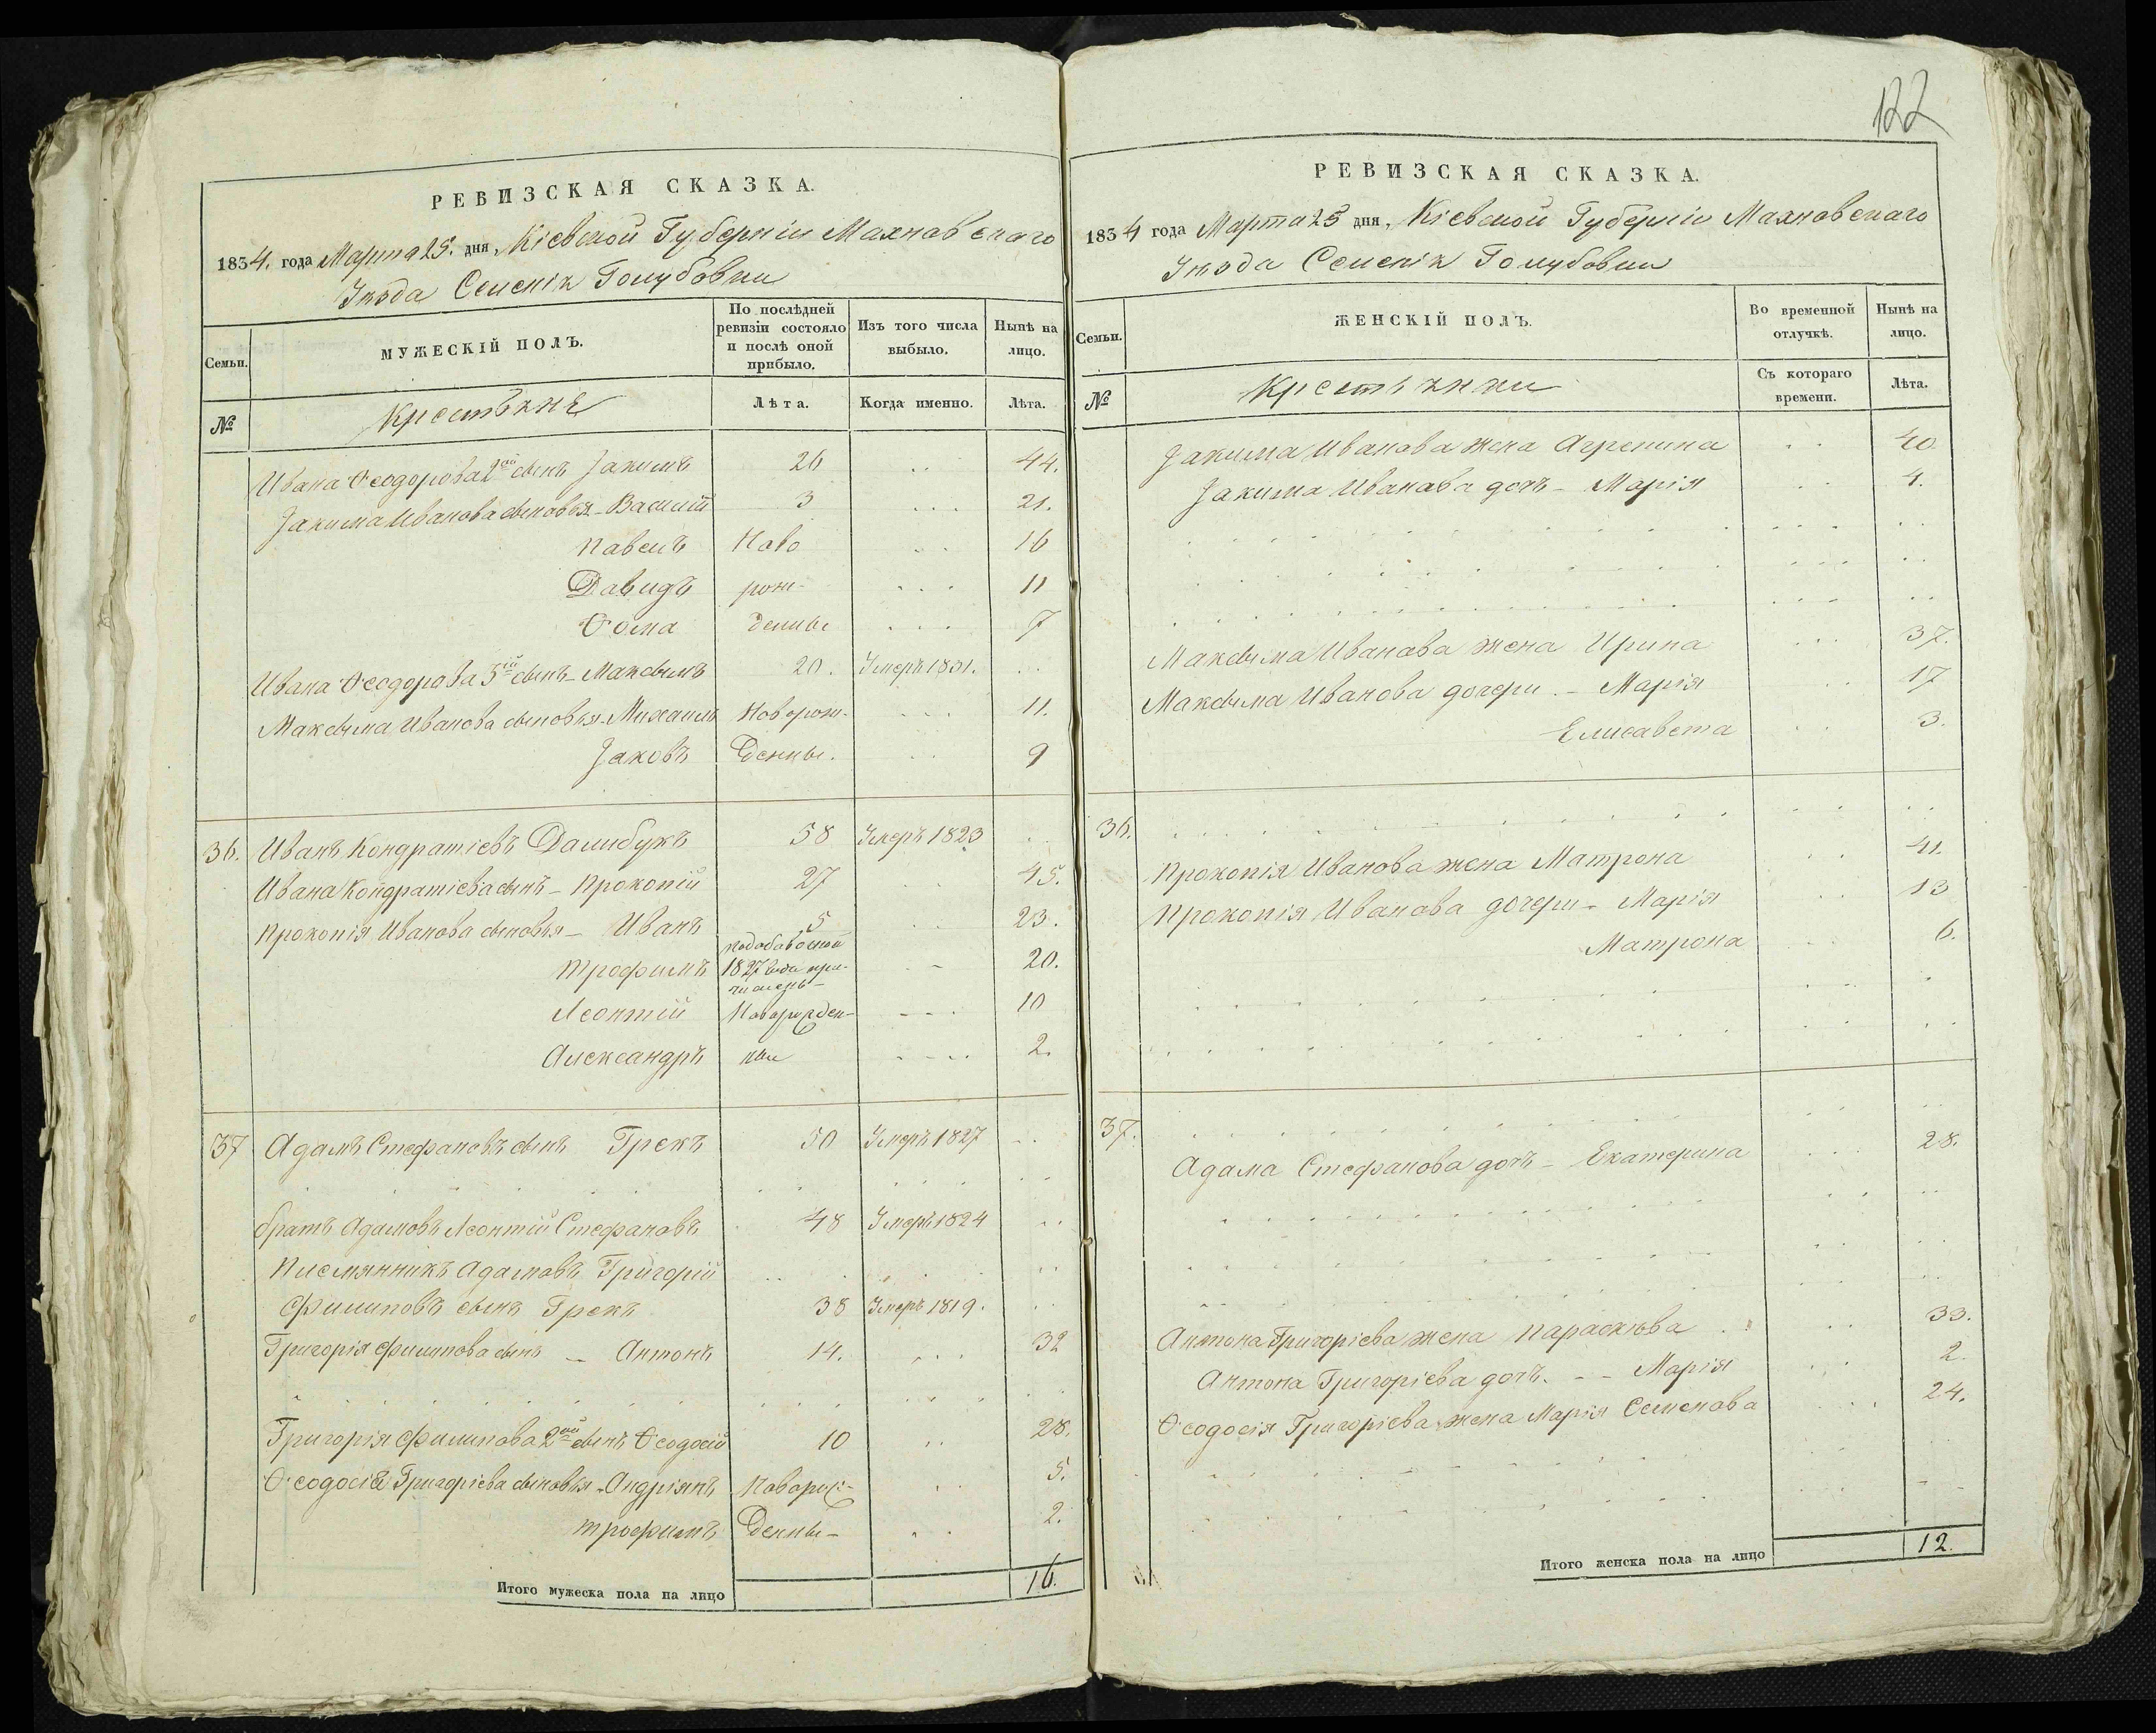 РЕВИЗСКАЯ СКАЗКА.
1834. года Марта 25. дня, Кіевской Губерніи Махновскаго
Уѣзда Селенія Голубовки
Семьи.
МУЖЕСКІЙ ПОЛЪ.
По послѣдней ревизіи состояло и послѣ оной прибыло.
Изъ того числа выбыло.
Нынѣ на лицо.
№
Крестьяне
Лѣта.
Когда именно.
Лѣта.
Ивана Ѳеодорова 2ой сынъ Јакимъ 26 44.
Јакима Иванова сыновья - Василій 3 21.
Павелъ Ново 16
Давидъ рож- 11
Ѳома денные 7
Ивана Ѳеодорова 3ій сынъ - Максымъ 20. Умеръ 1831.
Максыма Иванова сыновья - Михаилъ Новорож- 11.
Јаковъ денные. 9
36. Иванъ Кондратіевъ Далибукъ 58 Умеръ 1823
Ивана Кондратіева сынъ - Прокопій 27 45.
Прокопія Иванова сыновья - Иванъ 5 23.
Трофимъ подобавочной 1827 года при- численъ - 20.
Леонтій Новорожден- 10
Александръ ные 2.
37 Адамъ Стефановъ сынъ Грекъ 50 Умеръ 1827
братъ Адамовъ Леонтій Стефановъ 48 Умеръ 1824
Племянникъ Адамовъ Григорій
Филиповъ сынъ Грекъ 38 Умеръ 1819.
Григорія Филипова сынъ - Антонъ 14. 32
Григорія Филипова 2ой сынъ Ѳеодосій 10 28.
Ѳеодосія Григоріева сыновья - Андріянъ Новорож- 5.
Трофимъ денные - 2.
Итого мужеска пола на лицо 16.
122
РЕВИЗСКАЯ СКАЗКА.
1834 года Марта 25 дня, Кіевской Губерніи Махновскаго
Уѣзда Селенія Голубовки
Семьи.
ЖЕНСКІЙ ПОЛЪ.
Во временной отлучкѣ.
Нынѣ на лицо.
№
Крестьянки
Съ котораго времени.
Лѣта.
Јакима Иванова жена Агрепина 40.
Јакима Иванова дочь - Марія 4.
Максыма Иванова жена Ирина 37.
Максыма Иванова дочери. - Марія 17
Елисавета 3.
36.
Прокопія Иванова жена Матрона 41.
Прокопія Иванова дочери - Марія 13
Матрона 6.
37.
Адама Стефанова дочь - Екатерина 28.
Антона Григоріева жена Параскѣва 33.
Антона Григоріева дочь. - - Марія 2.
Ѳеодосія Григоріева жена Марія Семенова 24.
Итого женска пола на лицо 12.